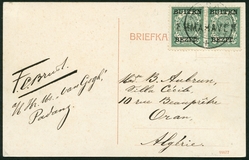 BRIEFKA
BUITEN
BEZIT
BUITEN
BEZIT
EMMAHAVEN
F. C. Brust.
van Gogh
Padang.
Mr. B. Aubrun,
Villa Cécile,
10 rue Beauprêtre
Oran.
Algérie.